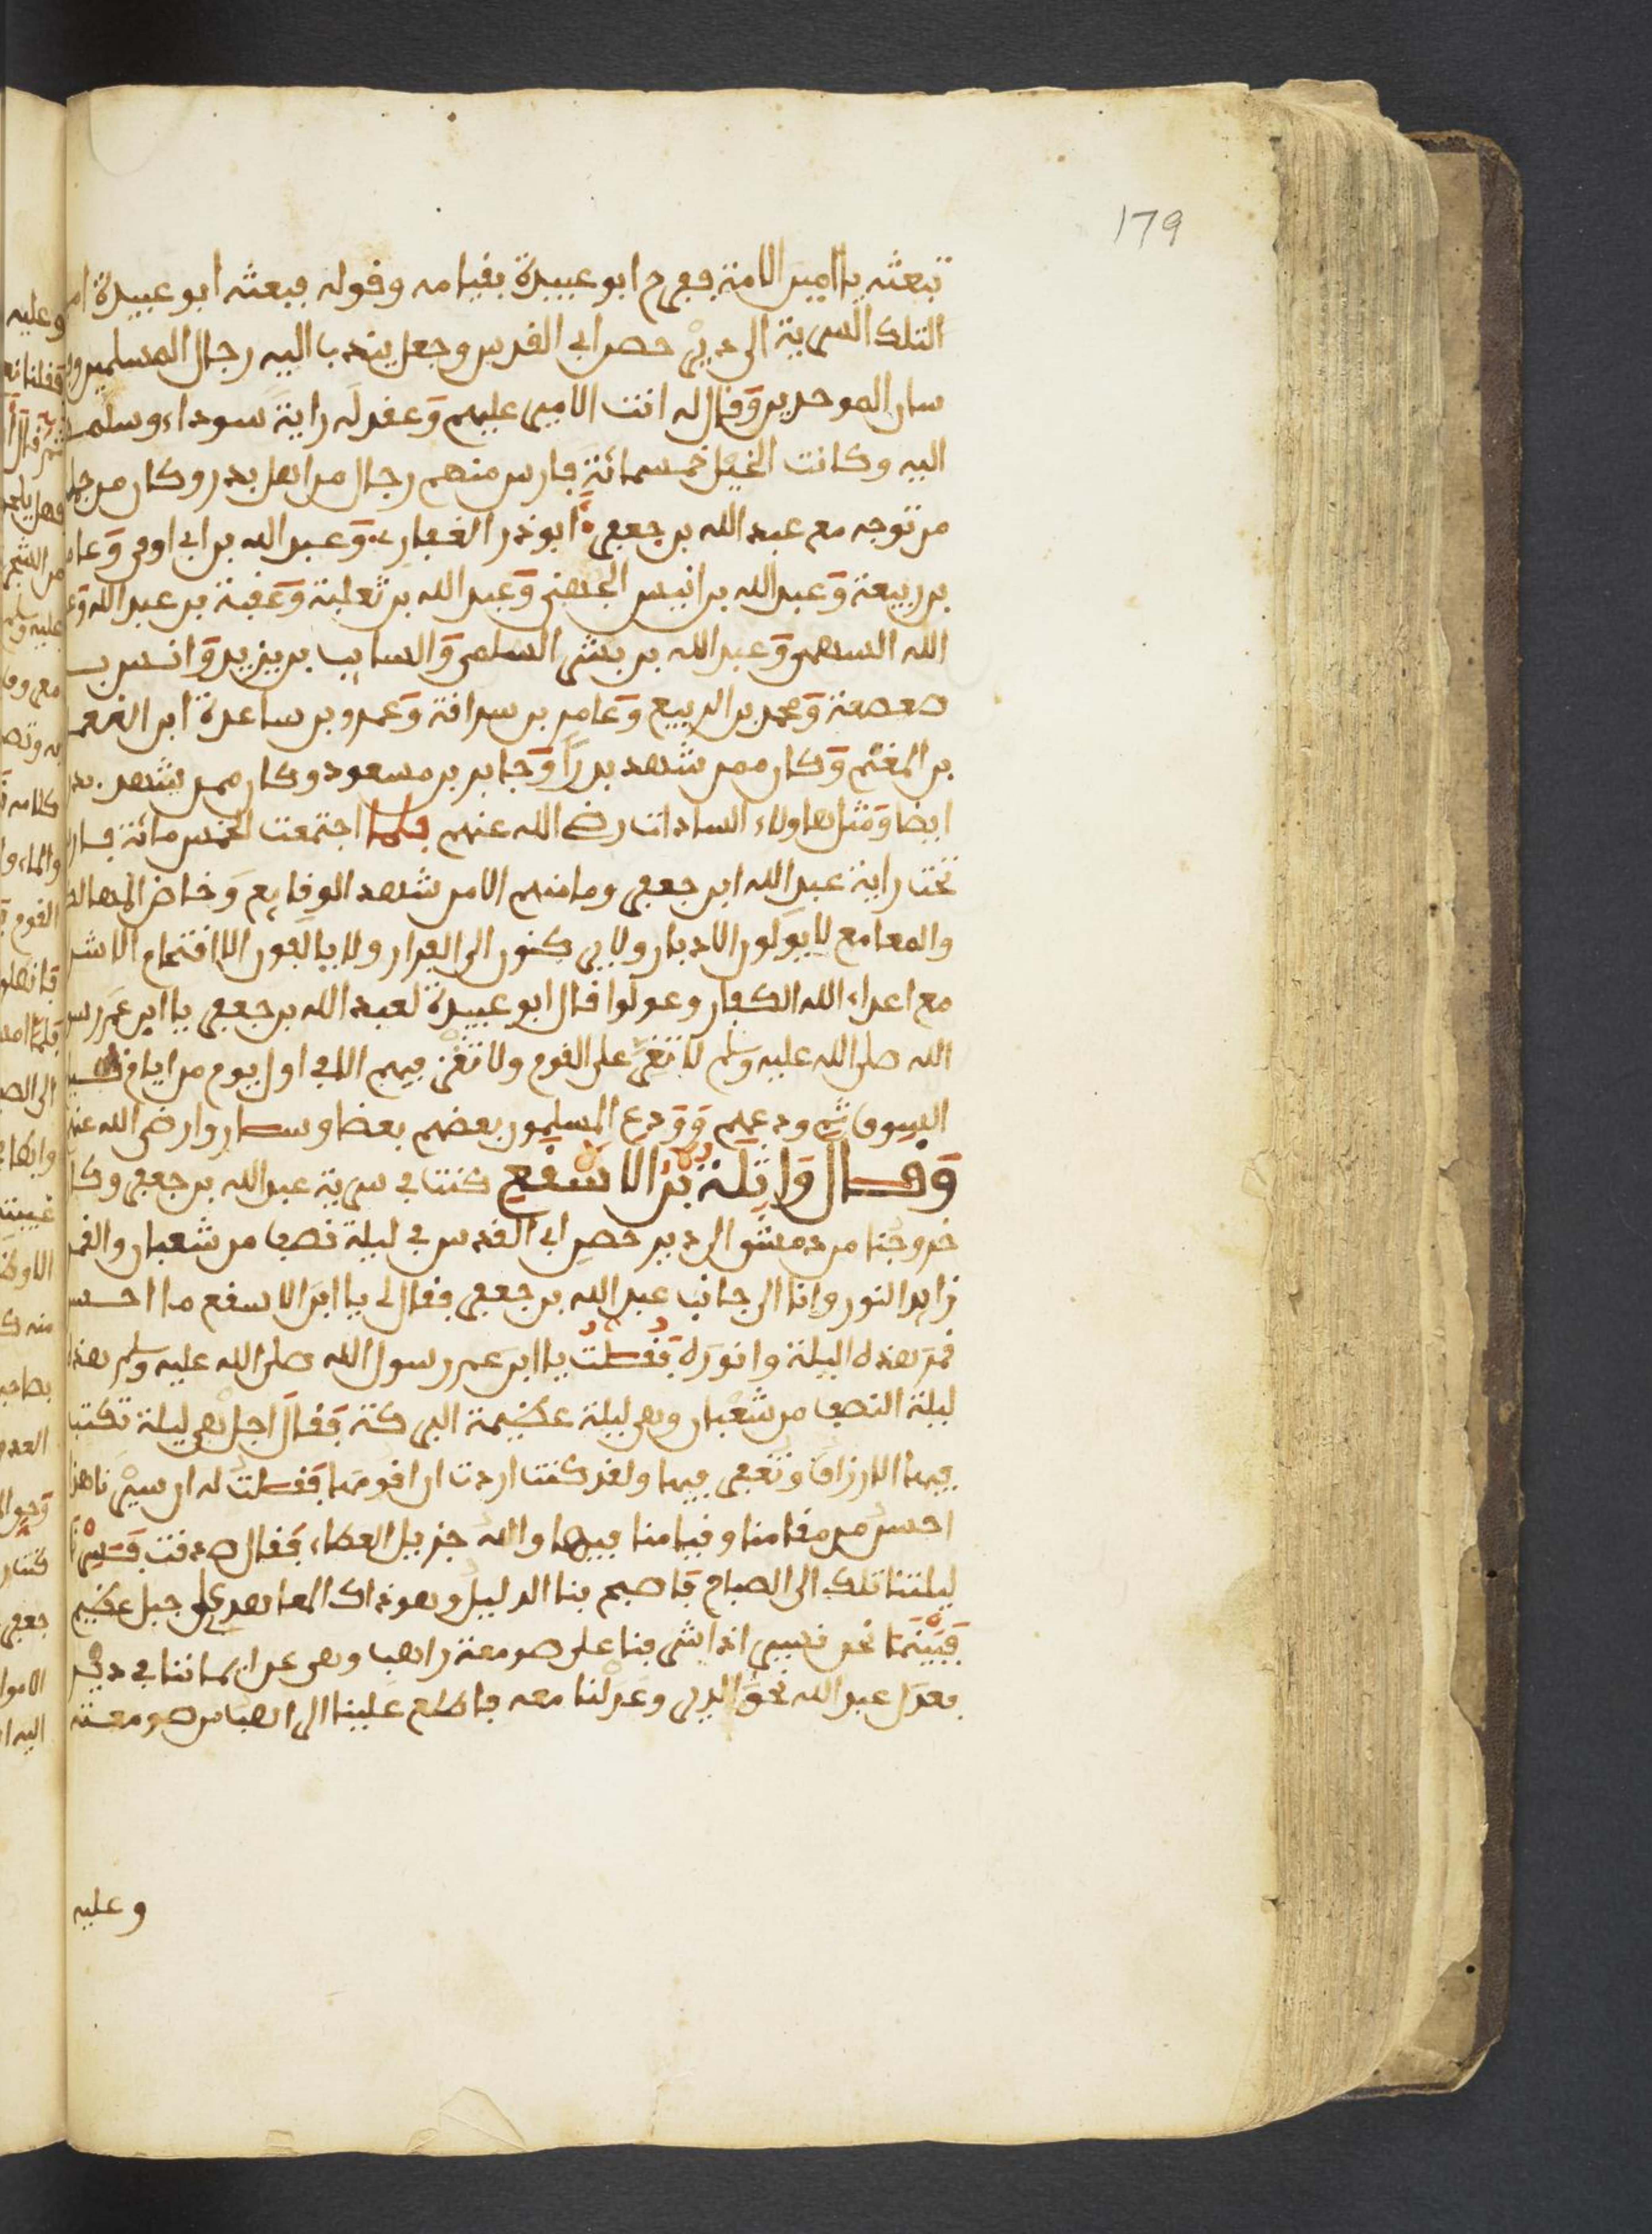 179
تبعثه يا امير الامة ففرح ابو عبيدة بقيامه وقوله فبعثه ابو عبيدة
لتلك السرية الى دير حصن ابي القدس وجعل يندب اليه رجال المسلمين
سار الموحدين وقال له انت الامير عليهم وعقد له راية سوداء وسلمها
اليه وكانت الخيل خمسمائة فارس منهم رجال من اهل بدر وكان من جملة
من توجه مع عبد الله بن جعفر ابو ذر الغفاري وعبد الله بن ابي اوفى وعامر
بن ربيعة وعبد الله بن انيس الجهني وعبد الله بن ثعلبة وعقبة بن عبد الله
الله السهمي وعبد الله بن بشر السلمي والسايب بن يزيد وانس بن
صعصعة ومحمد بن الربيع وعامر بن سراقة وعمرو بن ساعدة ابن
بن المغنم وكان ممن شهد بدرا وجابر بن مسعود وكان ممن يشهد بدرا
ايضا ومثل هاولاء السادات رضي الله عنهم فلما اجتمعت الخمس مائة فارس
تحت راية عبد الله ابن جعفر وما منهم الا من شهد الوقايع وخاض المهالك
والمعامع لا يولون الادبار ولا يركنون الى الفرار ولا يبالغون الا اقتحام الاشرار
مع اعداء الله الكفار وعولوا قال ابو عبيدة لعبد الله بن جعفر يا ابن عم رسول
الله صلى الله عليه وسلم لا تغر على القوم ولا تغز فيهم الا في اول يوم من ايام قيام
السوق ثم ودعهم وودع المسلمون بعضهم بعضا وساروا رضي الله عنهم
وقال واثلة بن الاسقع كنت في سرية عبد الله بن جعفر وكان
خروجنا من دمشق الى دير حصن ابي القدس في ليلة نصف من شعبان والقمر
زايد النور وانا الى جانب عبد الله بن جعفر فقال لي يا ابن الاسقع ما احسن
قمر هذه اليلة وانوره فقلت يا ابن عم رسول الله صلى الله عليه وسلم هذه
ليلة النصف من شعبان وهي ليلة عظيمة البركة فقال اجل هي ليلة تكتب
فيها الارزاق وتغفر فيها ولقد كنت اردت ان اقومها فقلت له ان سيرنا هذا
احسن من مقامنا وقيامنا فيها والله جزيل العطاء فقال صدقت فسرنا
ليلتنا تلك الى الصباح فاصبح بنا الدليل وهو ذاك المعاهدي جبل عظيم
فبينما نحن نسير اذ اشرفنا على صومعة راهب وهي عن ايماننا في دير
فعدل عبد الله نحو الدير وعدلنا معه فاطلع علينا الراهب من صومعته
وعليه